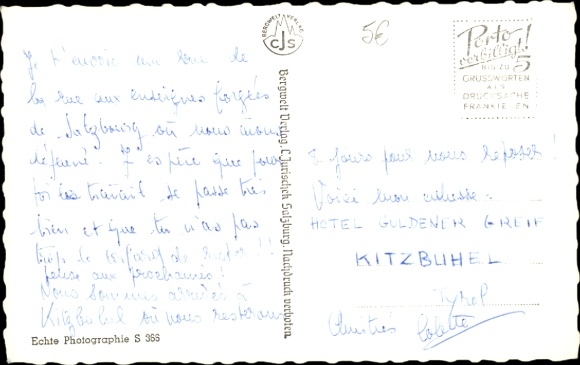 Je t'envoie une vue de
la rue aux enseignes forgées
de Salzbourg où nous avons
déjeuné. J'espère que pour
toi le travail se passe très
bien et que tu n'as pas
trop le cafard de
pense aux prochaines !
Nous sommes arrivés à
Kitzbühel où nous resterons
Echte Photographie S 366
BERGWELT VERLAG
CJS
Bergwelt Verlag, C. Jurischek Salzburg. Nachdruck verboten.
5€
Porto
verbilligt!
BIS ZU 5
GRUSSWORTEN
ALS
DRUCKSACHE
FRANKIEREN
jours pour nous reposer !
Voici mon adresse :
HOTEL GULDENER GREIF
KITZBUHEL
Tyrol
Colette